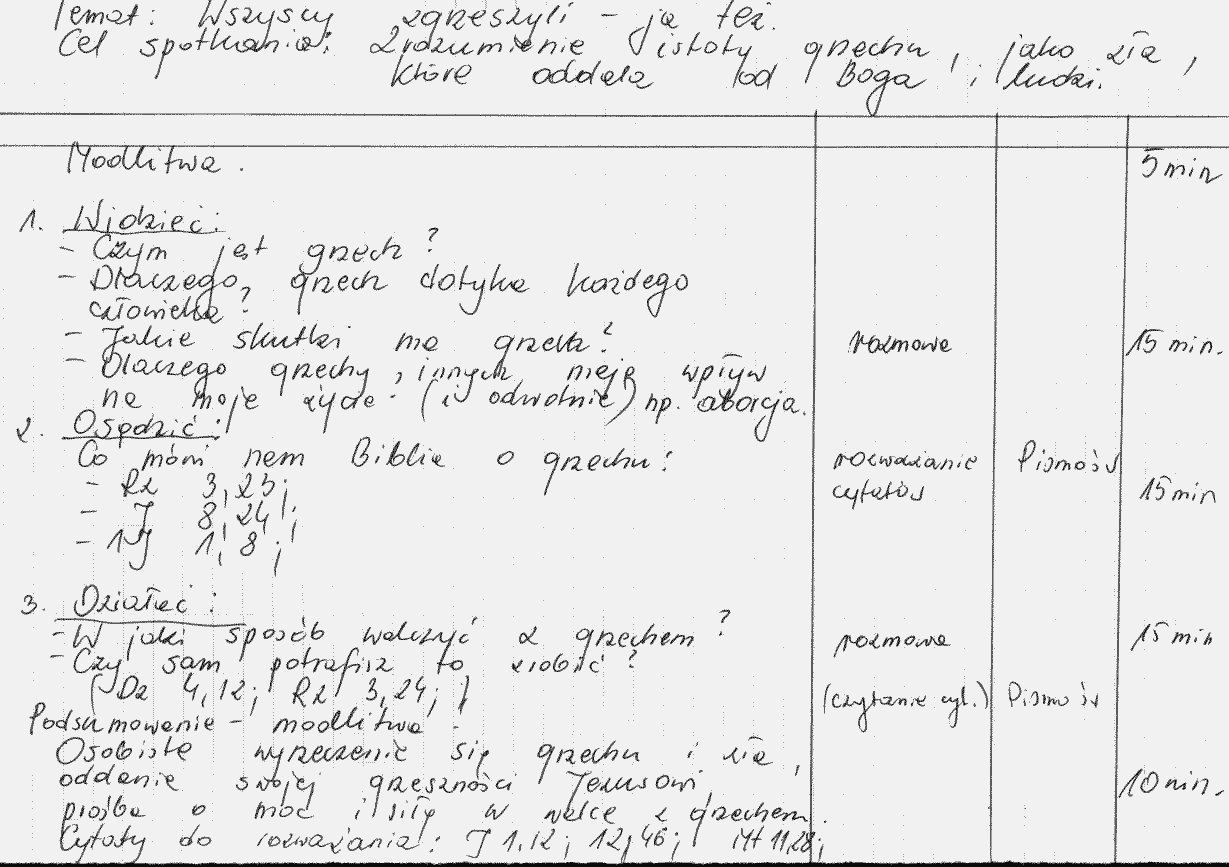 Temat: Wszyscy zgrzeszyli - ja też.
Cel spotkania: Zrozumienie istoty grzechu, jako zła,
które oddala od Boga i ludzi.
Modlitwa. 5 min
1. Widzieć:
- Czym jest grzech?
- Dlaczego, grzech dotyka każdego
człowieka?
- Jakie skutki ma grzech? rozmowa 15 min.
- Dlaczego grzechy innych mają wpływ
na moje życie (i odwrotnie) np. aborcja.
2. Osądzić:
Co mówi nam Biblia o grzechu: rozważanie Pismo św
- Rz 3,23; cytatów 15 min
- J 8,24;
- 1J 1,8;
3. Działać:
- W jaki sposób walczyć z grzechem? rozmowa 15 min
- Czy sam potrafisz to zrobić?
(Dz 4,12; Rz 3,24;) (czytanie cyt.) Pismo św
Podsumowanie - modlitwa
Osobiste wyrzeczenie się grzechu i zła,
oddanie swojej grzeszności Jezusowi, 10 min.
prośba o moc i siłę w walce z grzechem.
Cytaty do rozważania: J 1,12; 12,46; Mt 11,28;